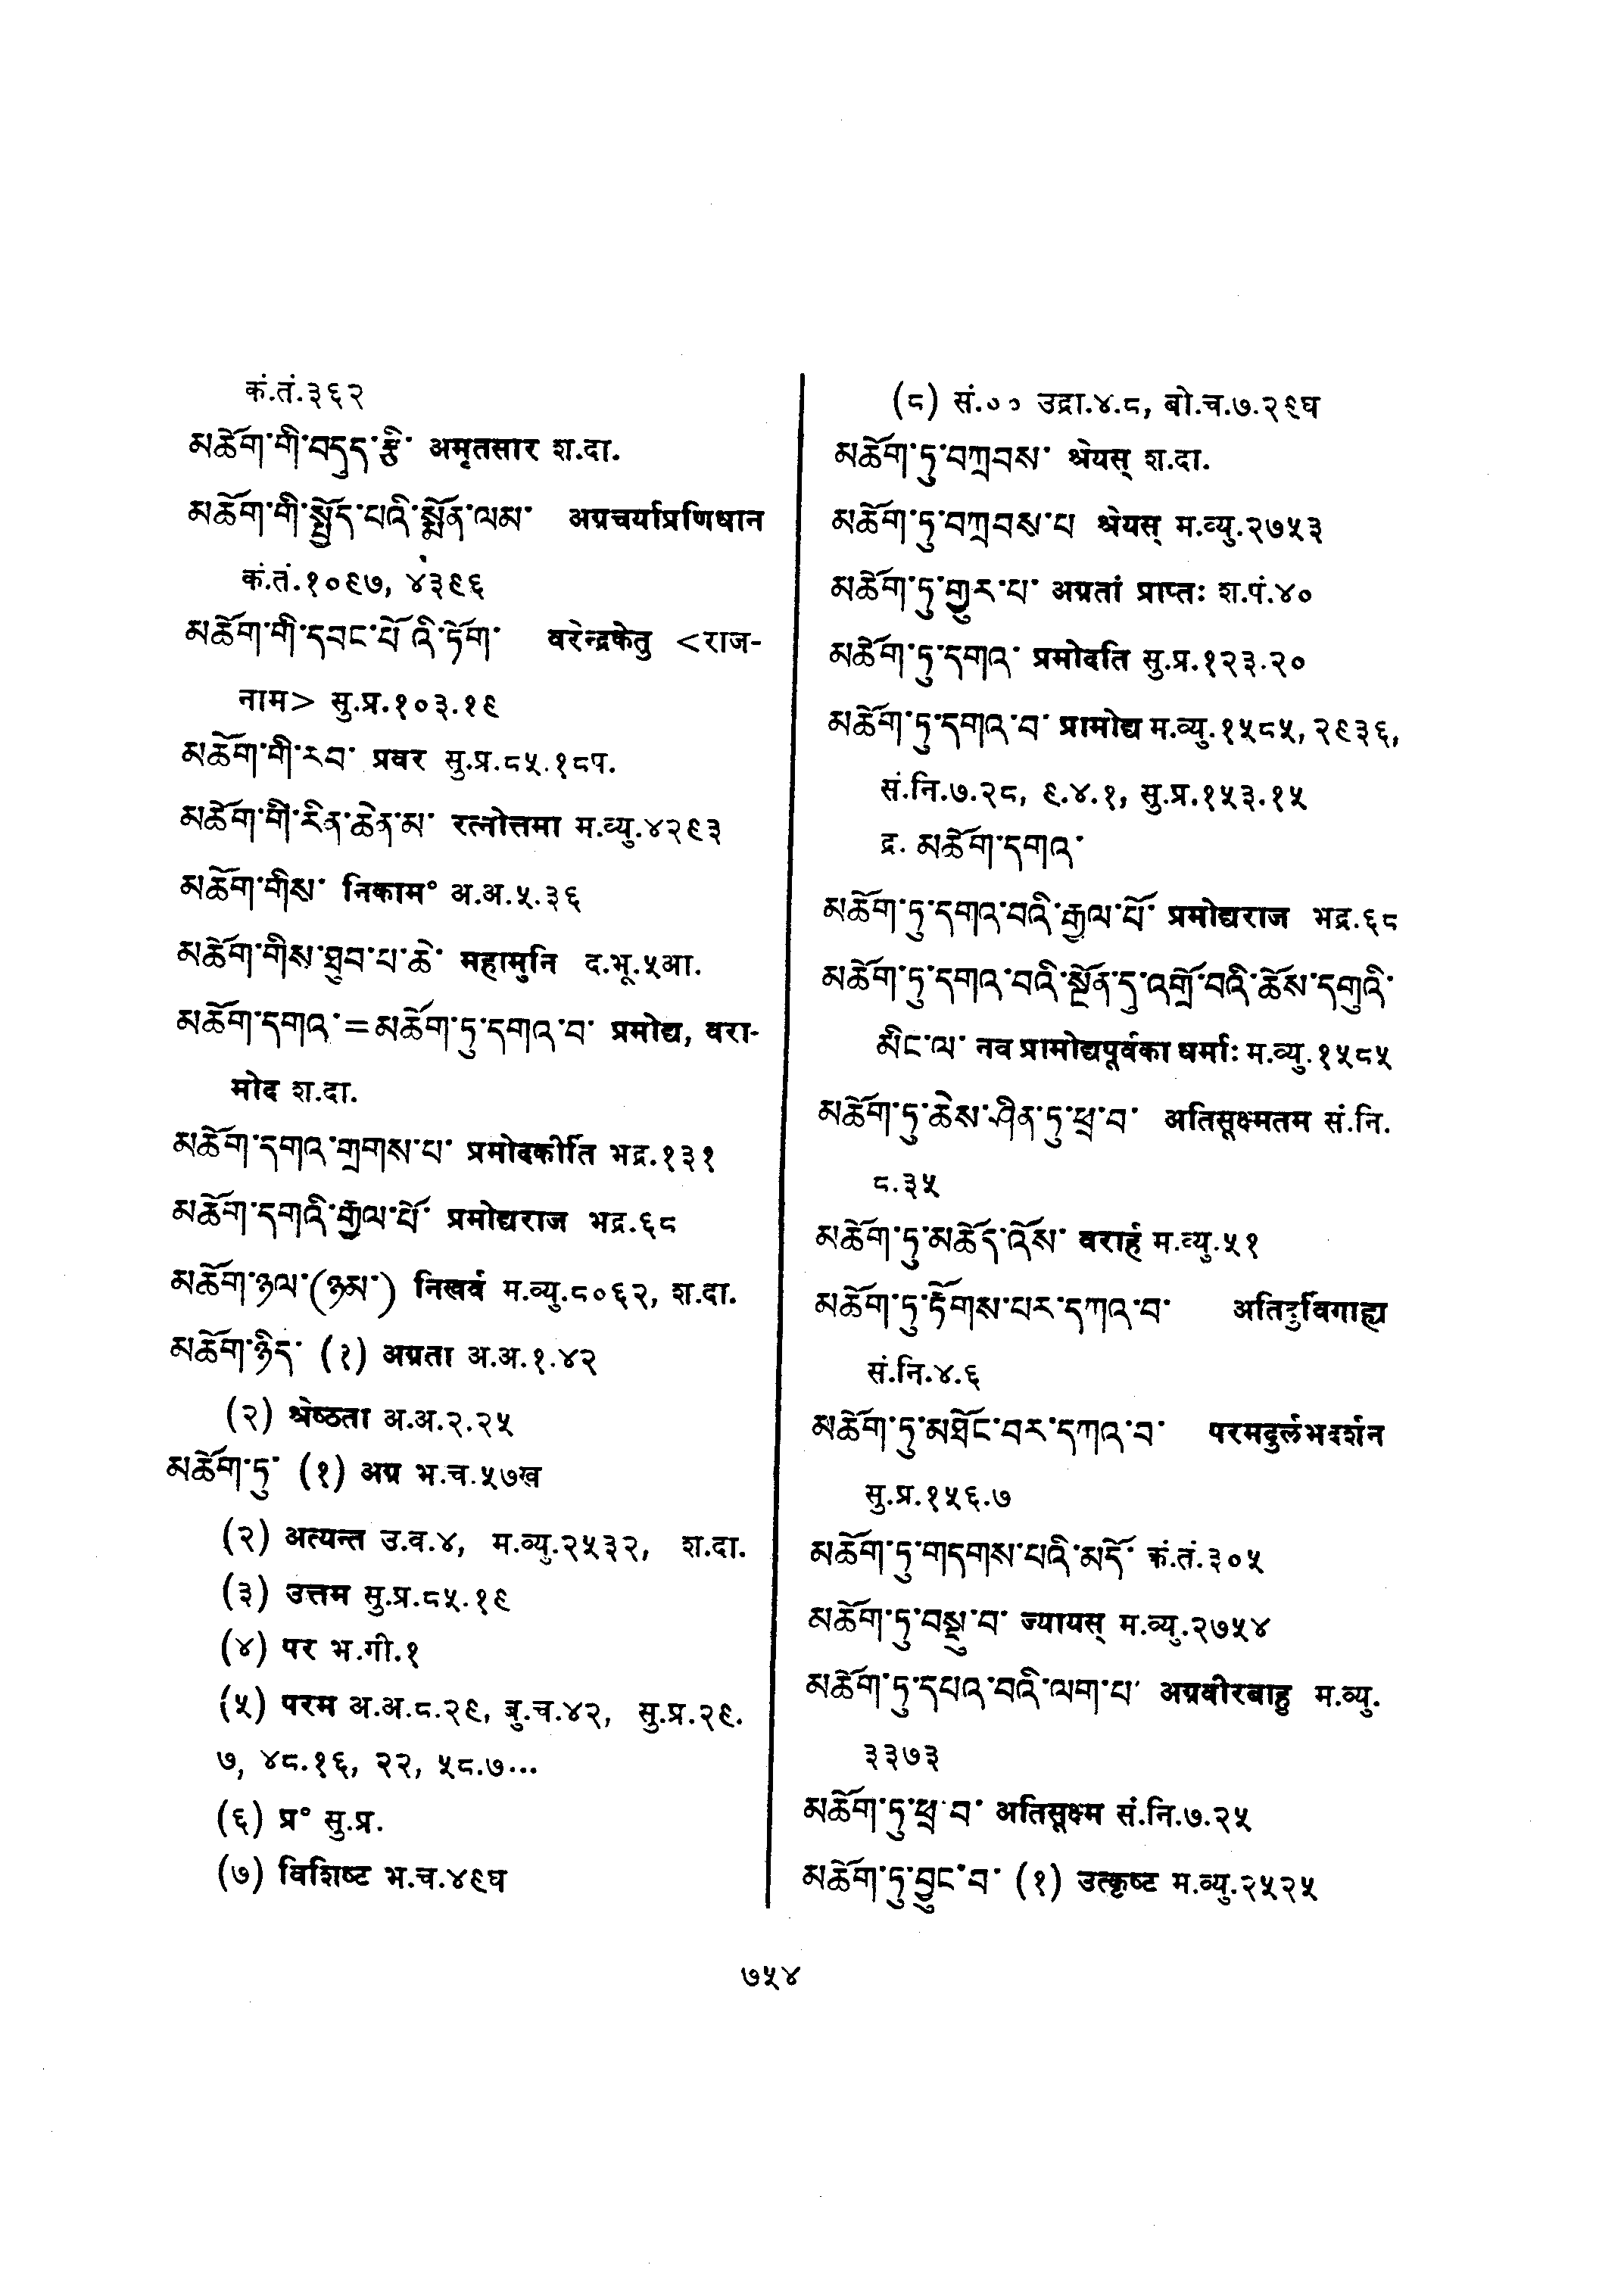 कं.तं.३६२
མཆོག་གི་བདུད་རྩི་ अमृतसार श.दा.
མཆོག་གི་སྤྱོད་པའི་སྨོན་ལམ་ अग्रचर्याप्रणिधान
कं.तं.१०९७, ४३९६
མཆོག་གི་དབང་པོ་འི་ཏོག་ वरेन्द्रकेतु <राज-
नाम> सु.प्र.१०३.१९
མཆོག་གི་རབ་ प्रवर सु.प्र.८५.१८प.
མཆོག་གི་རིན་ཆེན་མ་ रत्नोत्तमा म.व्यु.४२९३
མཆོག་གིས་ निकाम° अ.अ.५.३६
མཆོག་གིས་ཐུབ་པ་ཆེ་ महामुनि द.भू.५आ.
མཆོག་དགའ་=མཆོག་ཏུ་དགའ་བ་ प्रमोद्य, वरा-
मोद श.दा.
མཆོག་དགའ་གྲགས་པ་ प्रमोदकीर्ति भद्र.१३१
མཆོག་དགའི་རྒྱལ་པོ་ प्रमोद्यराज भद्र.६८
མཆོག་ཉལ་(ཉམ་) निखर्व म.व्यु.८०६२, श.दा.
མཆོག་ཉིད་ (१) अग्रता अ.अ.१.४२
(२) श्रेष्ठता अ.अ.२.२५
མཆོག་ཏུ་ (१) अग्र भ.च.५७ख
(२) अत्यन्त उ.व.४, म.व्यु.२५३२, श.दा.
(३) उत्तम सु.प्र.८५.१९
(४) पर भ.गी.१
(५) परम अ.अ.८.२९, बु.च.४२, सु.प्र.२९.
७, ४८.१६, २२, ५८.७...
(६) प्र° सु.प्र.
(७) विशिष्ट भ.च.४९घ
(८) सं.०० उद्रा.४.८, बो.च.७.२९घ
མཆོག་ཏུ་བཀྲབས་ श्रेयस् श.दा.
མཆོག་ཏུ་བཀྲབས་པ श्रेयस् म.व्यु.२७५३
མཆོག་ཏུ་གྱུར་པ་ अग्रतां प्राप्तः श.पं.४०
མཆོག་ཏུ་དགའ་ प्रमोदति सु.प्र.१२३.२०
མཆོག་ཏུ་དགའ་བ་ प्रामोद्य म.व्यु.१५८५, २९३६,
सं.नि.७.२८, ९.४.१, सु.प्र.१५३.१५
द्र. མཆོག་དགའ་
མཆོག་ཏུ་དགའ་བའི་རྒྱལ་པོ་ प्रमोद्यराज भद्र.६८
མཆོག་ཏུ་དགའ་བའི་སྔོན་དུ་འགྲོ་བའི་ཆོས་དགུའི་
མིང་ལ་ नव प्रामोद्यपूर्वका धर्माः म.व्यु.१५८५
མཆོག་ཏུ་ཆེས་ཤིན་ཏུ་ཕྲ་བ་ अतिसूक्ष्मतम सं.नि.
८.३५
མཆོག་ཏུ་མཆོད་འོས་ वरार्ह म.व्यु.५१
མཆོག་ཏུ་རྟོགས་པར་དཀའ་བ་ अतिदुर्विगाह्य
सं.नि.४.६
མཆོག་ཏུ་མཐོང་བར་དཀའ་བ་ परमदुर्लभदर्शन
सु.प्र.१५६.७
མཆོག་ཏུ་གདགས་པའི་མདོ་ कं.तं.३०५
མཆོག་ཏུ་བསྔུ་བ་ ज्यायस् म.व्यु.२७५४
མཆོག་ཏུ་དཔའ་བའི་ལག་པ་ अग्रवीरबाहु म.व्यु.
३३७३
མཆོག་ཏུ་ཕྲ་བ་ अतिसूक्ष्म सं.नि.७.२५
མཆོག་ཏུ་བྱུང་བ་ (१) उत्कृष्ट म.व्यु.२५२५
७५४